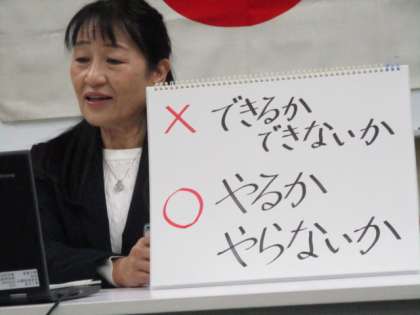 × できるか
できないか
○ やるか
やらないか